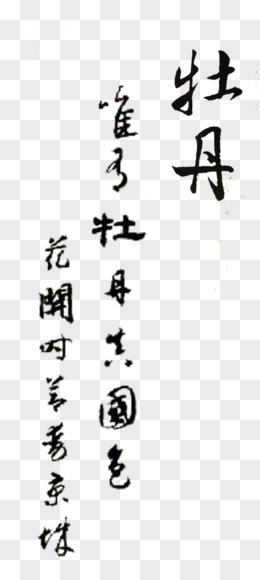 牡丹
唯有牡丹真國色
花開时节動京城